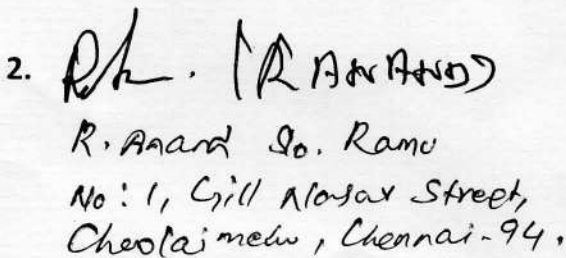 2. (R ANAND)
R. Anand S/o. Ramu
No: 1, Gill Nagar Street,
Choolaimedu, Chennai-94.